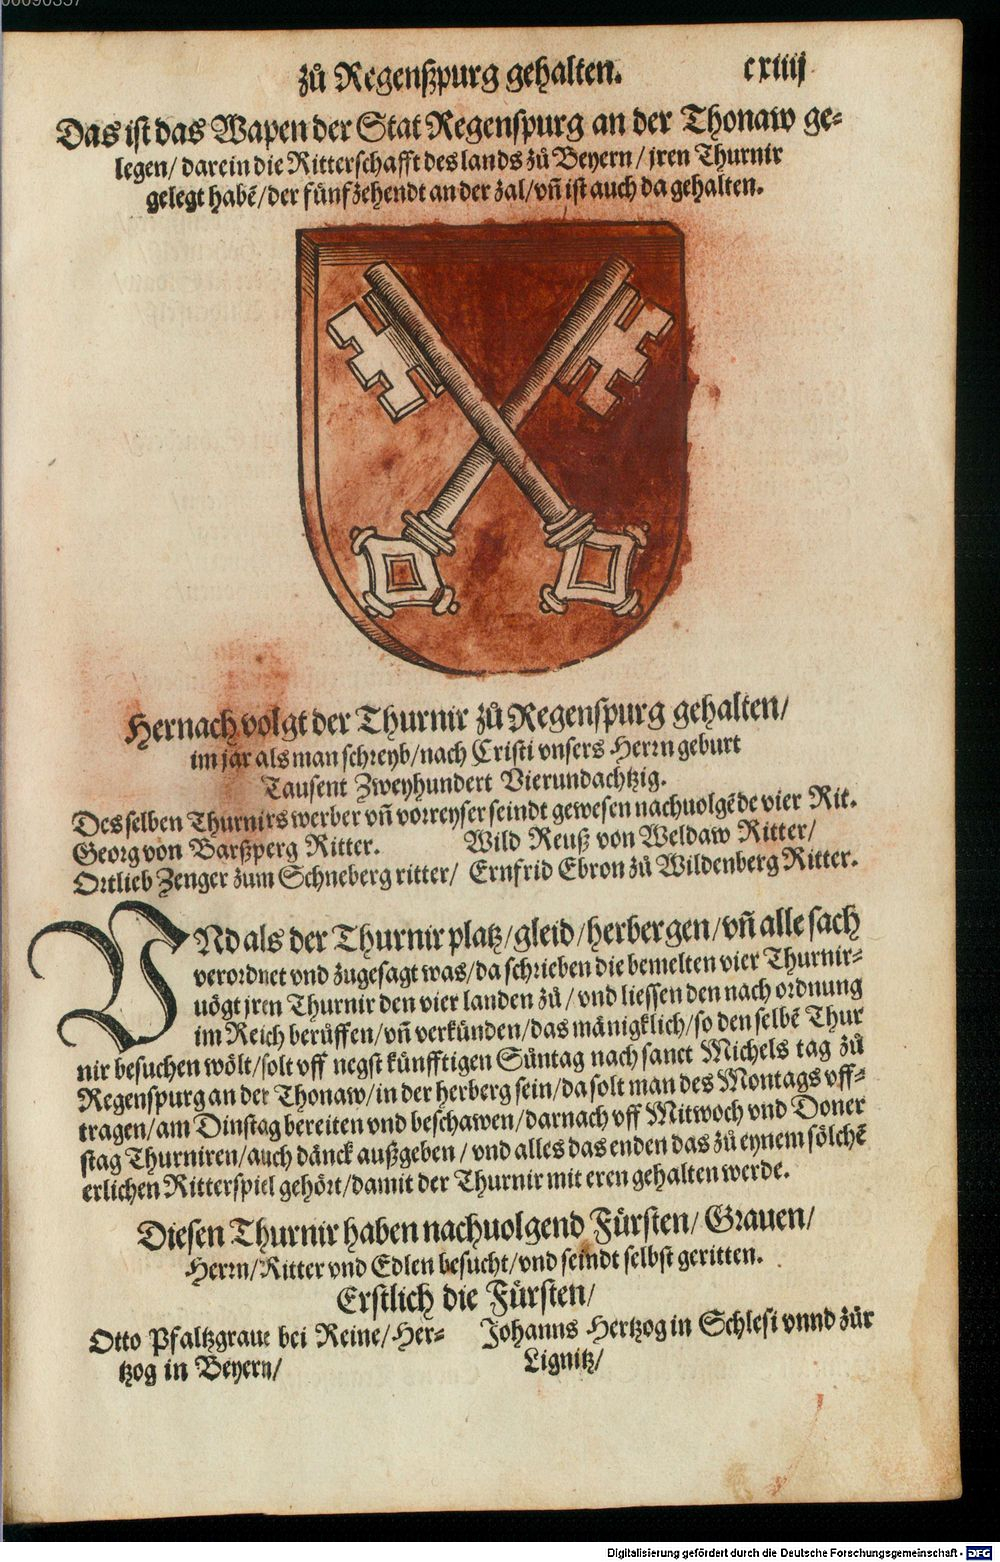 zů Regenßpurg gehalten. cxiiij
Das ist das Wapen der Stat Regenspurg an der Thonaw ge-
legen/ darein die Ritterschafft des lands zů Beyern/ jren Thurnir
gelegt habẽ/ der fünfzehendt an der zal/ vñ ist auch da gehalten.
Hernach volgt der Thurnir zů Regenspurg gehalten/
im jar als man schreyb/ nach Cristi vnsers Herrn geburt
Tausent Zweyhundert Vierundachtzig.
Des selben Thurnirs werber vñ vorreyser seindt gewesen nachuolgẽde vier Rit.
Georg von Barßperg Ritter. Wild Reuß von Weldaw Ritter/
Ortlieb Zenger zum Schneberg ritter/ Ernfrid Ebron zů Wildenberg Ritter.
VNd als der Thurnir platz/ gleid/ herbergen/ vñ alle sach
verordnet vnd zugesagt was/ da schrieben die bemelten vier Thurnir-
uögt jren Thurnir den vier landen zů/ vnd liessen den nach ordnung
im Reich berůffen/ vñ verkünden/ das mänigklich/ so den selbẽ Thur
nir besuchen wölt/ solt vff negst künfftigen Sůntag nach sanct Michels tag zů
Regenspurg an der Thonaw/ in der herberg sein/ da solt man des Montags vff-
tragen/ am Dinstag bereiten vnd beschawen/ darnach vff Mitwoch vnd Doner
stag Thurniren/ auch dänck außgeben/ vnd alles das enden das zů eynem sölchẽ
erlichen Ritterspiel gehört/ damit der Thurnir mit eren gehalten werde.
Diesen Thurnir haben nachuolgend Fürsten/ Grauen/
Herrn/ Ritter vnd Edlen besucht/ vnd seindt selbst geritten.
Erstlich die Fürsten/
Otto Pfaltzgraue bei Reine/ Her-
tzog in Beyern/
Johanns Hertzog in Schlesi vnnd zůr
Lignitz/
Digitalisierung gefördert durch die Deutsche Forschungsgemeinschaft - DFG